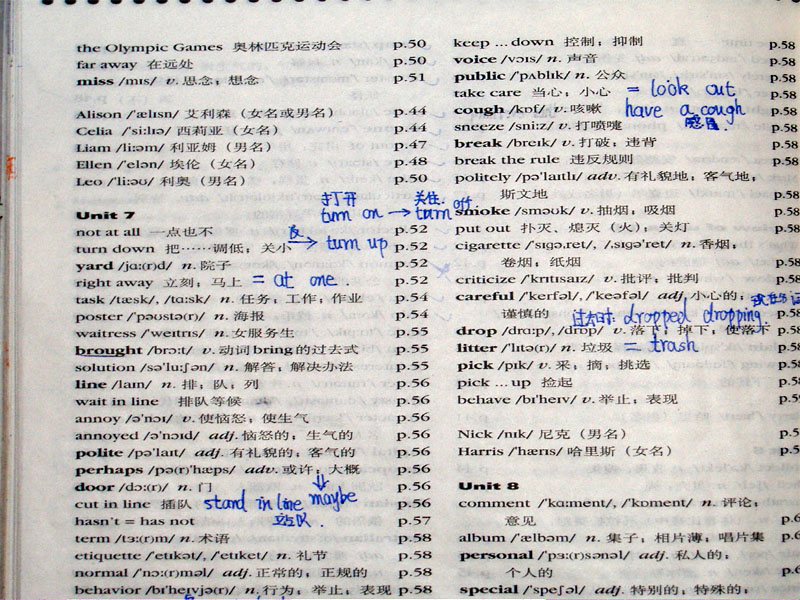 the Olympic Games 奥林匹克运动会 p.50
far away 在远处 p.50
miss /mɪs/ v. 思念；想念 p.51
Alison /'ælɪsn/ 艾利森（女名或男名） p.44
Celia /'siːlɪə/ 西莉亚（女名） p.44
Liam /liːəm/ 利亚姆（男名） p.47
Ellen /'elən/ 埃伦（女名） p.48
Leo /'liːəʊ/ 利奥（男名） p.50
打开 关住.
turn on → turn off.
Unit 7
not at all 一点也不 p.52
turn down 把……调低；关小 反 → turn up p.52
yard /jɑː(r)d/ n. 院子 p.52
right away 立刻；马上 = at one. p.52
task /tæsk/, /tɑːsk/ n. 任务；工作；作业 p.54
poster /'pəʊstə(r)/ n. 海报 p.54
waitress /'weɪtrɪs/ n. 女服务生 p.55
brought /brɔːt/ v. 动词bring的过去式 p.55
solution /sə'luːʃən/ n. 解答；解决办法 p.55
line /laɪn/ n. 排；队；列 p.56
wait in line 排队等候 p.56
annoy /ə'nɔɪ/ v. 使恼怒；使生气 p.56
annoyed /ə'nɔɪd/ adj. 恼怒的；生气的 p.56
polite /pə'laɪt/ adj. 有礼貌的；客气的 p.56
perhaps /pə(r)'hæps/ adv. 或许；大概 p.56
door /dɔː(r)/ n. 门 p.56
cut in line 插队 stand in line maybe p.56
hasn't = has not 站队. p.57
term /tɜː(r)m/ n. 术语 p.58
etiquette /'etɪkət/, /'etɪket/ n. 礼节 p.58
normal /'nɔː(r)məl/ adj. 正常的；正规的 p.58
behavior /bɪ'heɪvjə(r)/ n. 行为；举止；表现 p.58
keep ... down 控制；抑制 p.58
voice /vɔɪs/ n. 声音 p.58
public /'pʌblɪk/ n. 公众 p.58
take care 当心；小心 = look out p.58
cough /kɒf/ v. 咳嗽 have a cough p.58
sneeze /sniːz/ v. 打喷嚏 感冒. p.58
break /breɪk/ v. 打破；违背 p.58
break the rule 违反规则 p.58
politely /pə'laɪtlɪ/ adv. 有礼貌地；客气地；
斯文地 p.58
smoke /sməʊk/ v. 抽烟；吸烟 p.58
put out 扑灭、熄灭（火）；关灯 p.58
cigarette /'sɪgəret/, /ˌsɪgə'ret/ n. 香烟；
卷烟；纸烟 p.58
criticize /'krɪtɪsaɪz/ v. 批评；批判 p.58
careful /'kerfəl/, /'keəfəl/ adj. 小心的；
谨慎的 过去时: dropped dropping p.58
drop /drɑːp/, /drɒp/ v. 落下；掉下；使落下
litter /'lɪtə(r)/ n. 垃圾 = trash p.58
pick /pɪk/ v. 采；摘；挑选 p.58
pick ... up 捡起 p.58
behave /bɪ'heɪv/ v. 举止；表现 p.59
Nick /nɪk/ 尼克（男名） p.5
Harris /'hærɪs/ 哈里斯（女名） p.5
Unit 8
comment /'kɑːment/, /'kɒment/ n. 评论；
意见 p.6
album /'ælbəm/ n. 集子；相片薄；唱片集 p.6
personal /'pɜː(r)sənəl/ adj. 私人的；
个人的 p.6
special /'speʃəl/ adj. 特别的；特殊的；